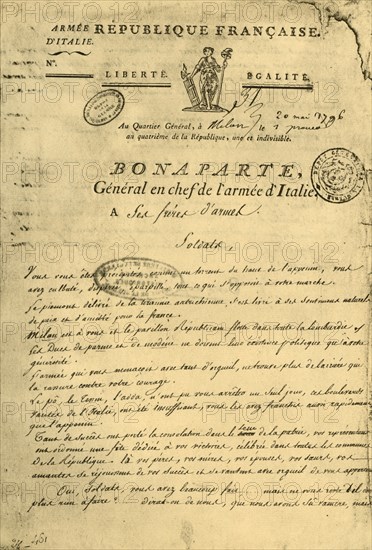 ARMÉE D'ITALIE.
RÉPUBLIQUE FRANÇAISE.
N°.
LIBERTÉ. ÉGALITÉ.
20 mai 1796
Au Quartier Général, à Milan le 1 prairial
au quatrième de la République, une et indivisible.
BONAPARTE,
Général en chef de l'armée d'Italie,
A Ses frères d'armes.
Soldats,
Vous vous êtes précipités comme un torrent du haut de l'apennin, vous
avez culbuté, dispersé, éparpillé tout ce qui s'opposoit à votre marche.
Le piemont délivré de la tirannie autrichienne, s'est livré à ses sentimens naturels
de paix et d'amitié pour la france.
Milan est à vous et le pavillon Républicain flotte dans toute la lombardie
Les Ducs de parme et de modène ne doivent leur existence politique qu'à votre
générosité.
L'armée qui vous menaçoit avec tant d'orgueil, ne trouve plus de barrière qui
la rassure contre votre courage.
Le pô, le Tesin, l'adda, n'ont pu vous arrêter un seul jour, ces boulevards
vantés de l'Italie, ont été insuffisant, vous les avez franchis aussi rapidement
que l'apennin.
Tant de succès ont porté la consolation dans le sein de la patrie, vos représentans
ont ordonné une fête dédiée à vos victoires, célébrée dans toutes les communes
De la République. là vos pères, vos mères, vos épouses, vos sœurs, vos
amantes se réjouissent de vos succès et se vantent avec orgueil de vous appartenir
Oui, Soldats, vous avez beaucoup fait mais ne vous reste t'il
plus rien à faire? dira-t-on de nous, que nous avons su vaincre, mais